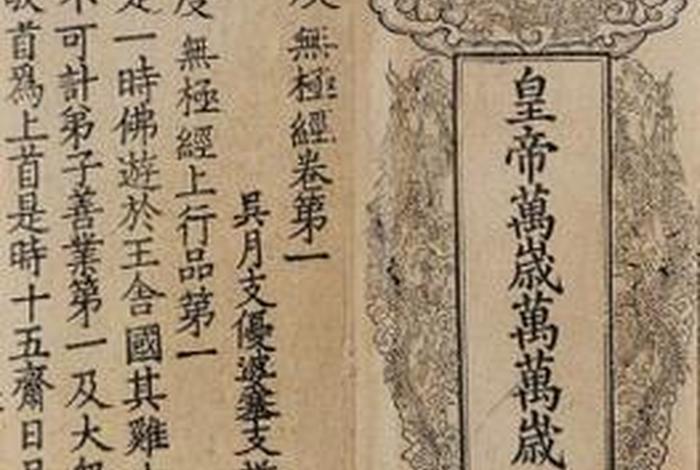 皇帝萬歳萬萬歳
無極經卷第一
吳月支優婆塞支
無極經上行品第一
是一時佛遊於王舍國其雞
不可計弟子善業第一及大
敬首爲上首是時十五齋日月